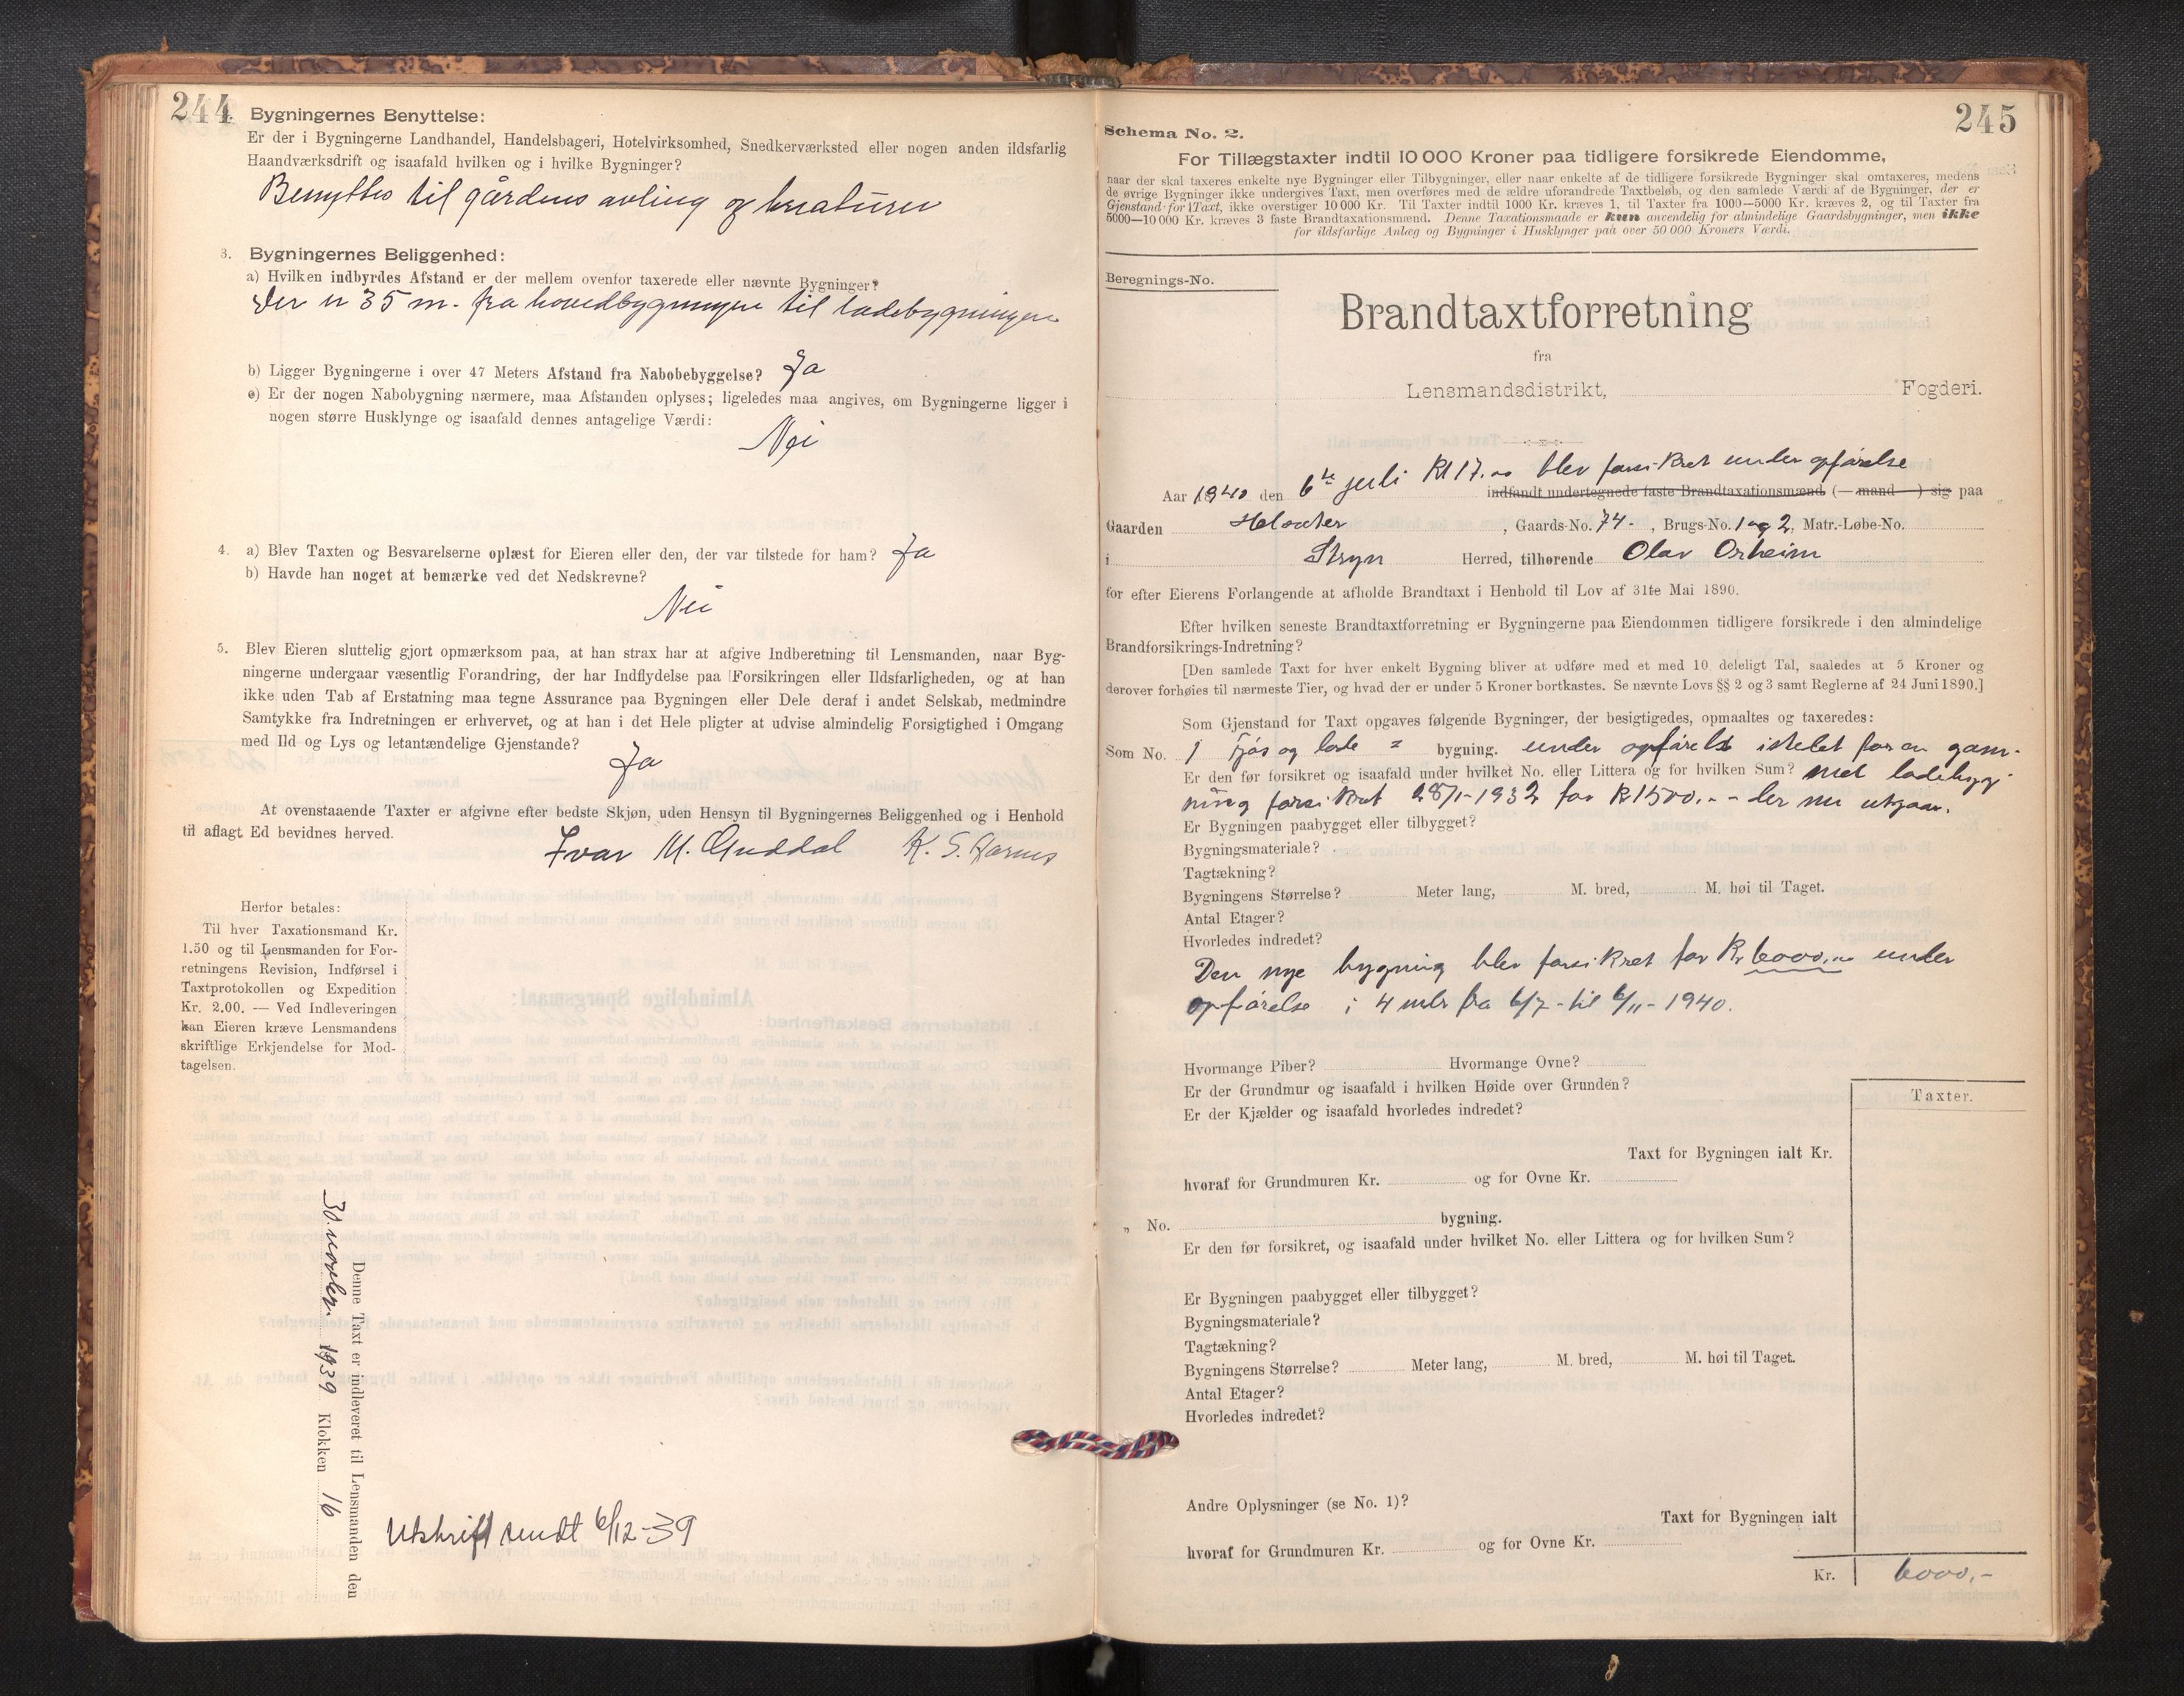 244
Bygningernes Benyttelse:
Er der i Bygningerne Landhandel, Handelsbageri, Hotelvirksomhed, Snedkerværksted eller nogen anden ildsfarlig
Haandværksdrift og isaafald hvilken og i hvilke Bygninger?
Benyttes til gårdens avling og kreaturer
3. Bygningernes Beliggenhed:
a) Hvilken indbyrdes Afstand er der mellem ovenfor taxerede eller nævnte Bygninger?
Der er 35 m. fra hovedbygningen til ladebygningen
b) Ligger Bygningerne i over 47 Meters Afstand fra Nabobebyggelse? Ja
c) Er der nogen Nabobygning nærmere, maa Afstanden oplyses; ligeledes maa angives, om Bygningerne ligger i
nogen større Husklynge og isaafald dennes antagelige Værdi:
Nei
4. a) Blev Taxten og Besvarelserne oplæst for Eieren eller den, der var tilstede for ham? Ja
b) Havde han noget at bemærke ved det Nedskrevne?
Nei
5. Blev Eieren sluttelig gjort opmærksom paa, at han strax har at afgive Indberetning til Lensmanden, naar Byg-
ningerne undergaar væsentlig Forandring, der har Indflydelse paa Forsikringen eller Ildsfarligheden, og at han
ikke uden Tab af Erstatning maa tegne Assurance paa Bygningen eller Dele deraf i andet Selskab, medmindre
Samtykke fra Indretningen er erhvervet, og at han i det Hele pligter at udvise almindelig Forsigtighed i Omgang
med Ild og Lys og letantændelige Gjenstande?
Ja
At ovenstaaende Taxter er afgivne efter bedste Skjøn, uden Hensyn til Bygningernes Beliggenhed og i Henhold
til aflagt Ed bevidnes herved.
Ivar M. Guddal K. S.
Herfor betales:
Til hver Taxationsmand Kr.
1.50 og til Lensmanden for For-
retningens Revision, Indførsel i
Taxtprotokollen og Expedition
Kr. 2.00. — Ved Indleveringen
kan Eieren kræve Lensmandens
skriftlige Erkjendelse for Mod-
tagelsen.
Denne Taxt er indleveret til Lensmanden den
30. novbr. 1939 Klokken 16
Utskrift sendt 6/12-39
245
Schema No. 2.
For Tillægstaxter indtil 10 000 Kroner paa tidligere forsikrede Eiendomme,
naar der skal taxeres enkelte nye Bygninger eller Tilbygninger, eller naar enkelte af de tidligere forsikrede Bygninger skal omtaxeres, medens
de øvrige Bygninger ikke undergives Taxt, men overføres med de ældre uforandrede Taxtbeløb, og den samlede Værdi af de Bygninger, der er
Gjenstand for Taxt, ikke overstiger 10 000 Kr. Til Taxter indtil 1000 Kr. kræves 1, til Taxter fra 1000—5000 Kr. kræves 2, og til Taxter fra
5000—10 000 Kr. kræves 3 faste Brandtaxationsmænd. Denne Taxationsmaade er kun anvendelig for almindelige Gaardsbygninger, men ikke
for ildsfarlige Anlæg og Bygninger i Husklynger paa over 50 000 Kroners Værdi.
Beregnings-No.
Brandtaxtforretning
fra
Lensmandsdistrikt, Fogderi.
Aar 1940 den 6te juli Kl 17.00 blev forsikret under opførelse
indfandt undertegnede faste Brandtaxationsmænd (— mand —) sig paa
Gaarden , Gaards-No. 74. , Brugs-No. 1 og 2, Matr.-Løbe-No.
i Stryn Herred, tilhørende Olav Orheim
for efter Eierens Forlangende at afholde Brandtaxt i Henhold til Lov af 31te Mai 1890.
Efter hvilken seneste Brandtaxtforretning er Bygningerne paa Eiendommen tidligere forsikrede i den almindelige
Brandforsikrings-Indretning?
[Den samlede Taxt for hver enkelt Bygning bliver at udføre med et med 10 deleligt Tal, saaledes at 5 Kroner og
derover forhøies til nærmeste Tier, og hvad der er under 5 Kroner bortkastes. Se nævnte Lovs §§ 2 og 3 samt Reglerne af 24 Juni 1890.]
Som Gjenstand for Taxt opgaves følgende Bygninger, der besigtigedes, opmaaltes og taxeredes:
Som No. 1 Fjøs og lade = bygning. under opførelse istedet for en gam-
Er den før forsikret og isaafald under hvilket No. eller Littera og for hvilken Sum? mel ladebyg-
ning forsikret 28/1-1932 for Kr 1500.- - der nu utgaar.
Er Bygningen paabygget eller tilbygget?
Bygningsmateriale?
Tagtækning?
Bygningens Størrelse? Meter lang, M. bred, M. høi til Taget.
Antal Etager?
Hvorledes indredet?
Den nye bygning blev forsikret for Kr 6000,00 under
opførelse i 4 mdr fra 6/7- til 6/11- 1940.
Hvormange Piber? Hvormange Ovne?
Er der Grundmur og isaafald i hvilken Høide over Grunden?
Er der Kjælder og isaafald hvorledes indredet?
Taxter.
Taxt for Bygningen ialt Kr.
hvoraf for Grundmuren Kr. og for Ovne Kr.
„ No. bygning.
Er den før forsikret, og isaafald under hvilket No. eller Littera og for hvilken Sum?
Er Bygningen paabygget eller tilbygget?
Bygningsmateriale?
Tagtækning?
Bygningens Størrelse? Meter lang, M. bred, M. høi til Taget.
Antal Etager?
Hvorledes indredet?
Andre Oplysninger (se No. 1)?
Taxt for Bygningen ialt
hvoraf for Grundmuren Kr. og for Ovne Kr.
Kr. 6000,-